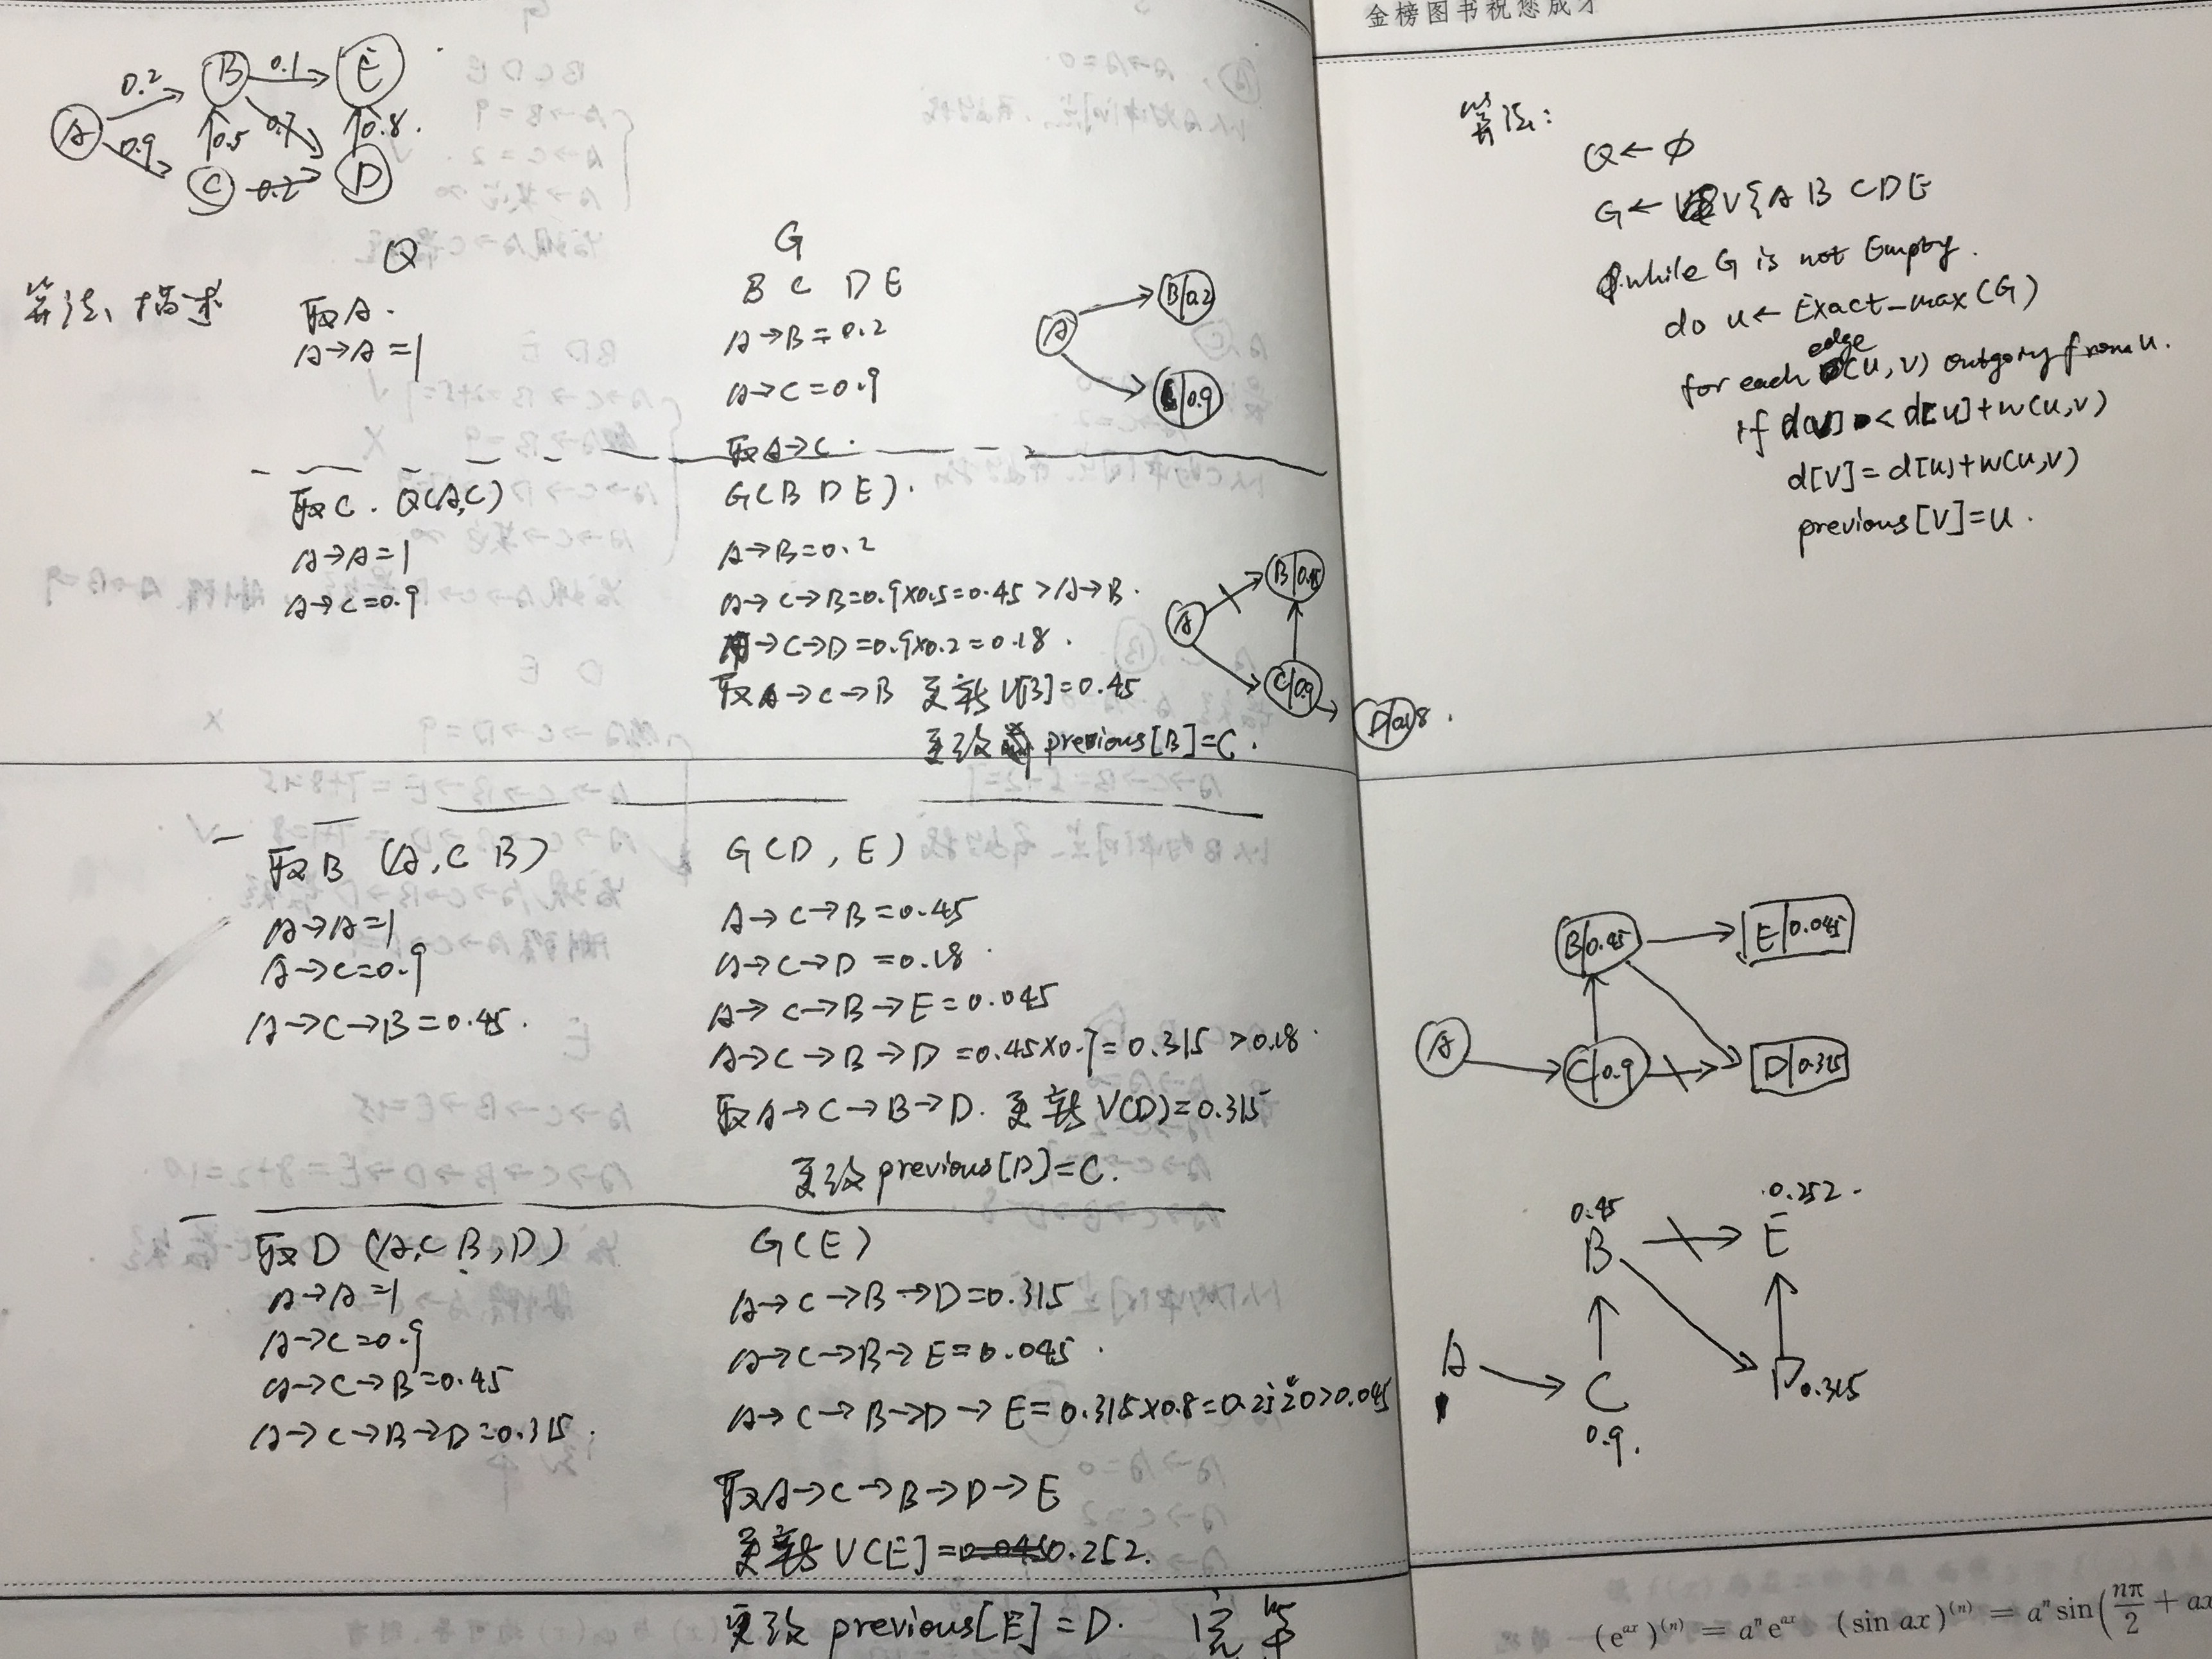 金榜图书祝您成才
A 0.2 B 0.1 E
0.9 0.5 0.7 0.8.
C 0.2 D
Q
G
算法描述
取A.
A→A=1
B C D E
A→B=0.2
A→C=0.9
取A→C.
A B|0.2
C|0.9
取C. Q(A,C)
A→A=1
A→C=0.9
G(B D E).
A→B=0.2
A→C→B=0.9×0.5=0.45 >A→B.
A→C→D=0.9×0.2=0.18.
取A→C→B 更新V[B]=0.45
更改 previous[B]=C.
A B|0.45
C|0.9
D|0.18.
取B (A,C B)
A→A=1
A→C=0.9
A→C→B=0.45.
G(D, E)
A→C→B=0.45
A→C→D=0.18.
A→C→B→E=0.045
A→C→B→D=0.45×0.7=0.315 >0.18.
取A→C→B→D. 更新 V(D)=0.315
更改 previous[D]=C.
取D (A,C B,D)
A→A=1
A→C=0.9
A→C→B=0.45
A→C→B→D=0.315.
G(E)
A→C→B→D=0.315
A→C→B→E=0.045.
A→C→B→D→E=0.315×0.8=0.2520>0.045
取A→C→B→D→E
更新 V(E]=0.252.
更改 previous[E]=D. 完毕
算法:
Q←Ø
G←V{A B C D E
while G is not Empty.
do u←Exact_max(G)
for each edge (u,v) outgoing from u.
if d[v] < d[u]+w(u,v)
d[v]=d[u]+w(u,v)
previous[v]=u.
B|0.45 E|0.045
A C|0.9 D|0.315
0.45 0.252.
B E
A C D 0.315
0.9.
(e^{ax})^{(n)} = a^n e^{ax} (sin ax)^{(n)} = a^n sin(nπ/2 + ax